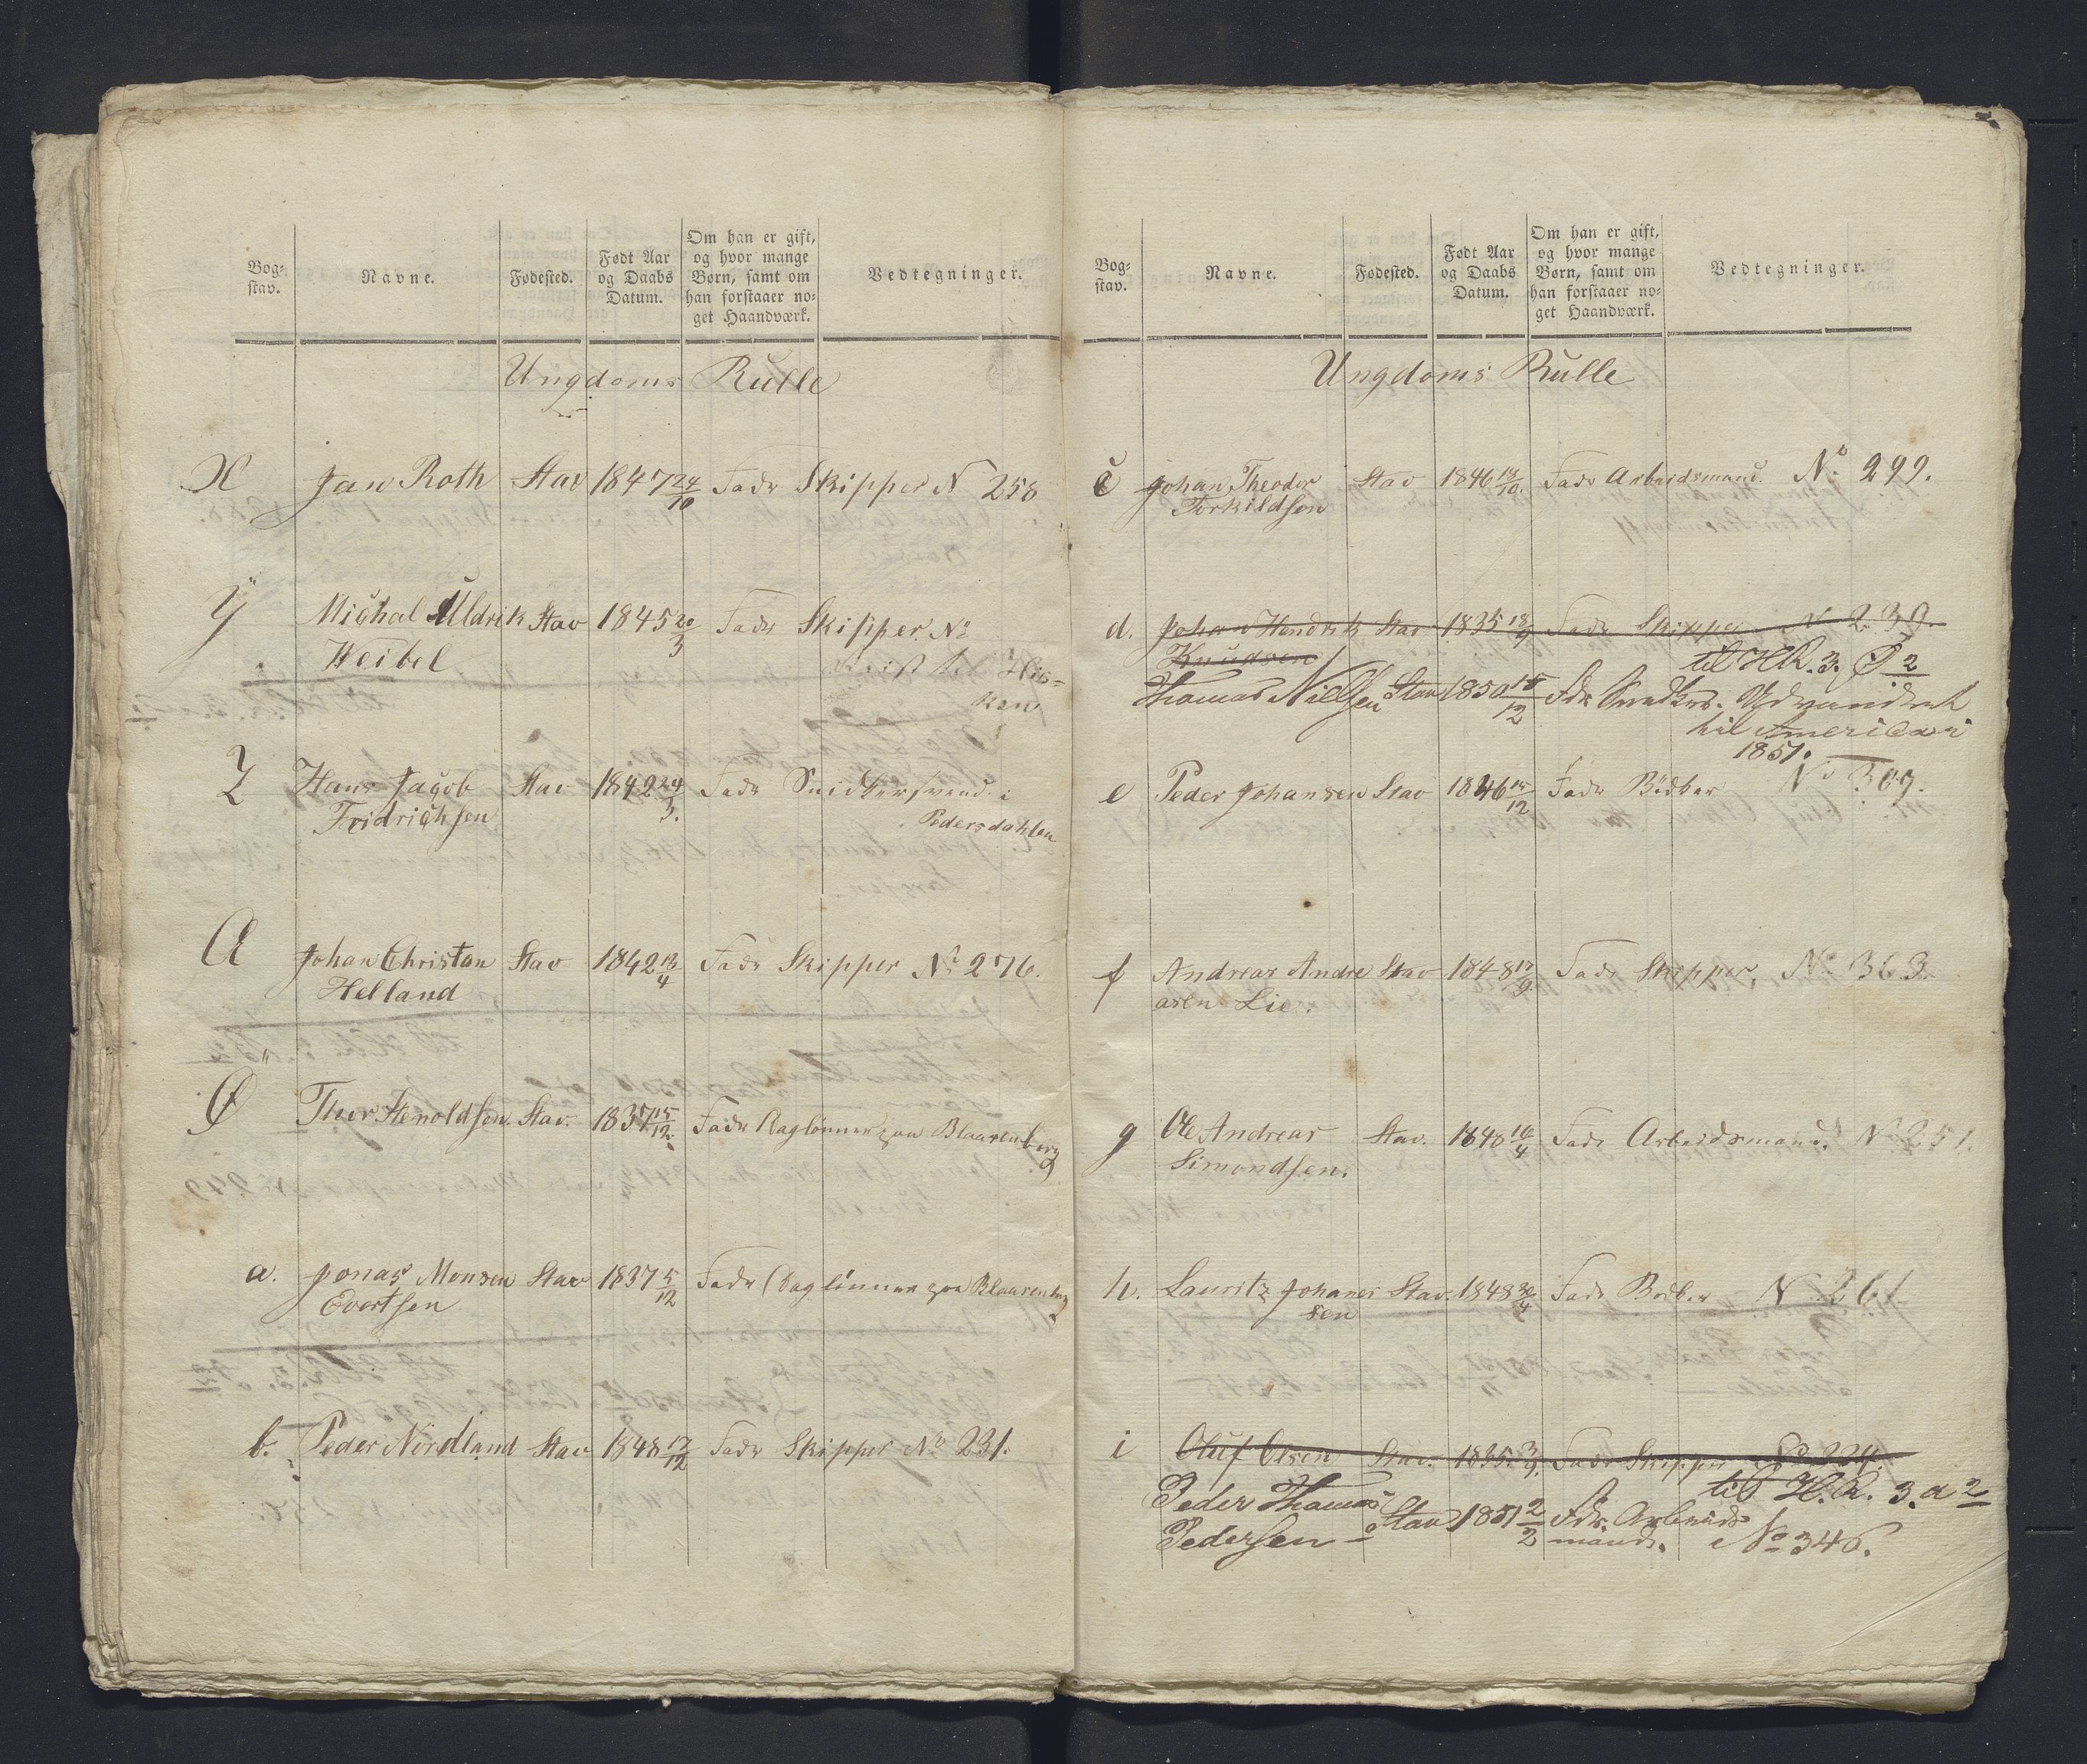 Bog-
stav.
Navne.
Fødested.
Født Aar
og Daabs
Datum.
Om han er gift,
og hvor mange
Børn, samt om
han forstaaer no-
get Haandværk.
Vedtegninger.
Ungdoms Rulle
X Jan Roth Stav 1847 24/10 Fadr Skipper N 258
Y Michal Uldrik Stav 1845 20/3 Fadr Skipper No
Weibel
Z Hans Jacob Stav 1842 24/3. Fadr i
Fridrichsen Pedersdahlen
A Johan Christan Stav 1842 13/4 Fadr Skipper No 276.
Helland
Ø Thor Stenoldsen Stav. 1837 15/12. Fadr Daglönner paa Blaasenberg
a. Jonas Monsen Stav 1837 5/12 Fadr Daglönner paa Blaasenberg
Evertsen
b. Peder Nordland Stav 1848 17/12 Fadr Skipper No 231.
Bog-
stav.
Navne.
Fødested.
Født Aar
og Daabs
Datum.
Om han er gift,
og hvor mange
Børn, samt om
han forstaaer no-
get Haandværk.
Vedtegninger.
Ungdoms Rulle
c Johan Theodor Stav 1846 13/10. Fadr Arbeidsmand. No 299.
Torkildsen
d. Johan Hendrik Stav 1835 18/9 Fadr Skipper N 239.
Knudsen til HR. 3. Ø 2
Thomas Nielsen Stav 1850 15/12 Fdr Snedker. Udvandret
til America i
1857.
e Peder Johansen Stav 1846 15/12 Fadr Bödker No 309.
f Andreas Andre Stav 1848 17/9. Fadr Skipper, No 363.
asen Lie.
g Ole Andreas Stav. 1848 16/4 Fadr Arbeidsmand. No 251.
Simondsen.
h. Lauritz Johanes Stav. 1848 30/4 Fadr Bödker N 361
sen
i Oluf Olsen Stav. 1835 3/9. Fadr Skipper No 224.
til H.R. 3. a 2
Peder Thomas Stav 1851 2/2 Fdr. Arbeids
Pedersen mand. No 346.